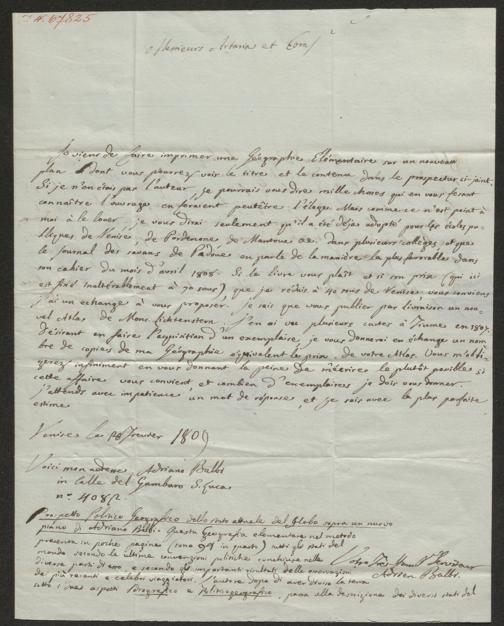 N. 67825
Messieurs Artaria et Comp.
Je viens de faire imprimer une Géographie Elémentaire sur un nouveau
plan dont vous pourrez voir le titre et le contenu dans le prospectus ci-joint.
Si je n'en étais pas l'auteur, je pourrais vous dire mille choses qui en vous feront
connaître l'ouvrage en feraient peutêtre l'éloge. Mais comme ce n'est point à
moi à le louer, je vous dirai seulement qu'il a été déjà adopté pour les écoles pu-
bliques de Venise, de Pordenone, de Mantoue &c. dans plusieurs collèges et que
le Journal des savans de Padoue en parle de la manière la plus favorable dans
son cahier du mois d'avril 1808. Si le livre vous plaît et si son prix (qui ici
est fixé inaltérablement à 70 sous) que je réduis à 40 sous de Venise vous convient
j'ai un échange à vous proposer. Je sais que vous publiez par livraison un nou-
vel Atlas de Mons. Lichtenstern. J'en ai vu plusieurs cartes à Fiume en 1807.
Désirant en faire l'acquisition d'un exemplaire, je vous donnerai en échange un nom-
bre de copies de ma Géographie équivalent le prix de votre Atlas. Vous m'obli-
gerez infiniment en vous donnant la peine de m'écrire le plutôt possible si
cette affaire vous convient et combien d'exemplaires je dois vous donner.
J'attends avec impatience un mot de réponse, et je suis avec la plus parfaite
estime
Venise le 28 Fevrier 1809
Voici mon adresse, Adriano Balbi
in Calle del Gambaro S. Luca
n.º 4082
Prospetto Politico Geografico dello stato attuale del Globo sopra un nuovo
piano di Adriano Balbi. Questa Geografia elementare nel metodo
presenta in poche pagine (in quarto) tutti gli stati del
mondo secondo le ultime convenzioni politiche conchiuse nelle
diverse parti di esso e secondo gli importanti risultati delle osservazioni
de' più recenti e celebri viaggiatori. L'autore dopo di aver diviso la terra
sotto i due aspetti Idrografico e Politicogeografico, passa alla descrizione dei diversi stati del
Votre Très Humb. Serviteur
Adrien Balbi.